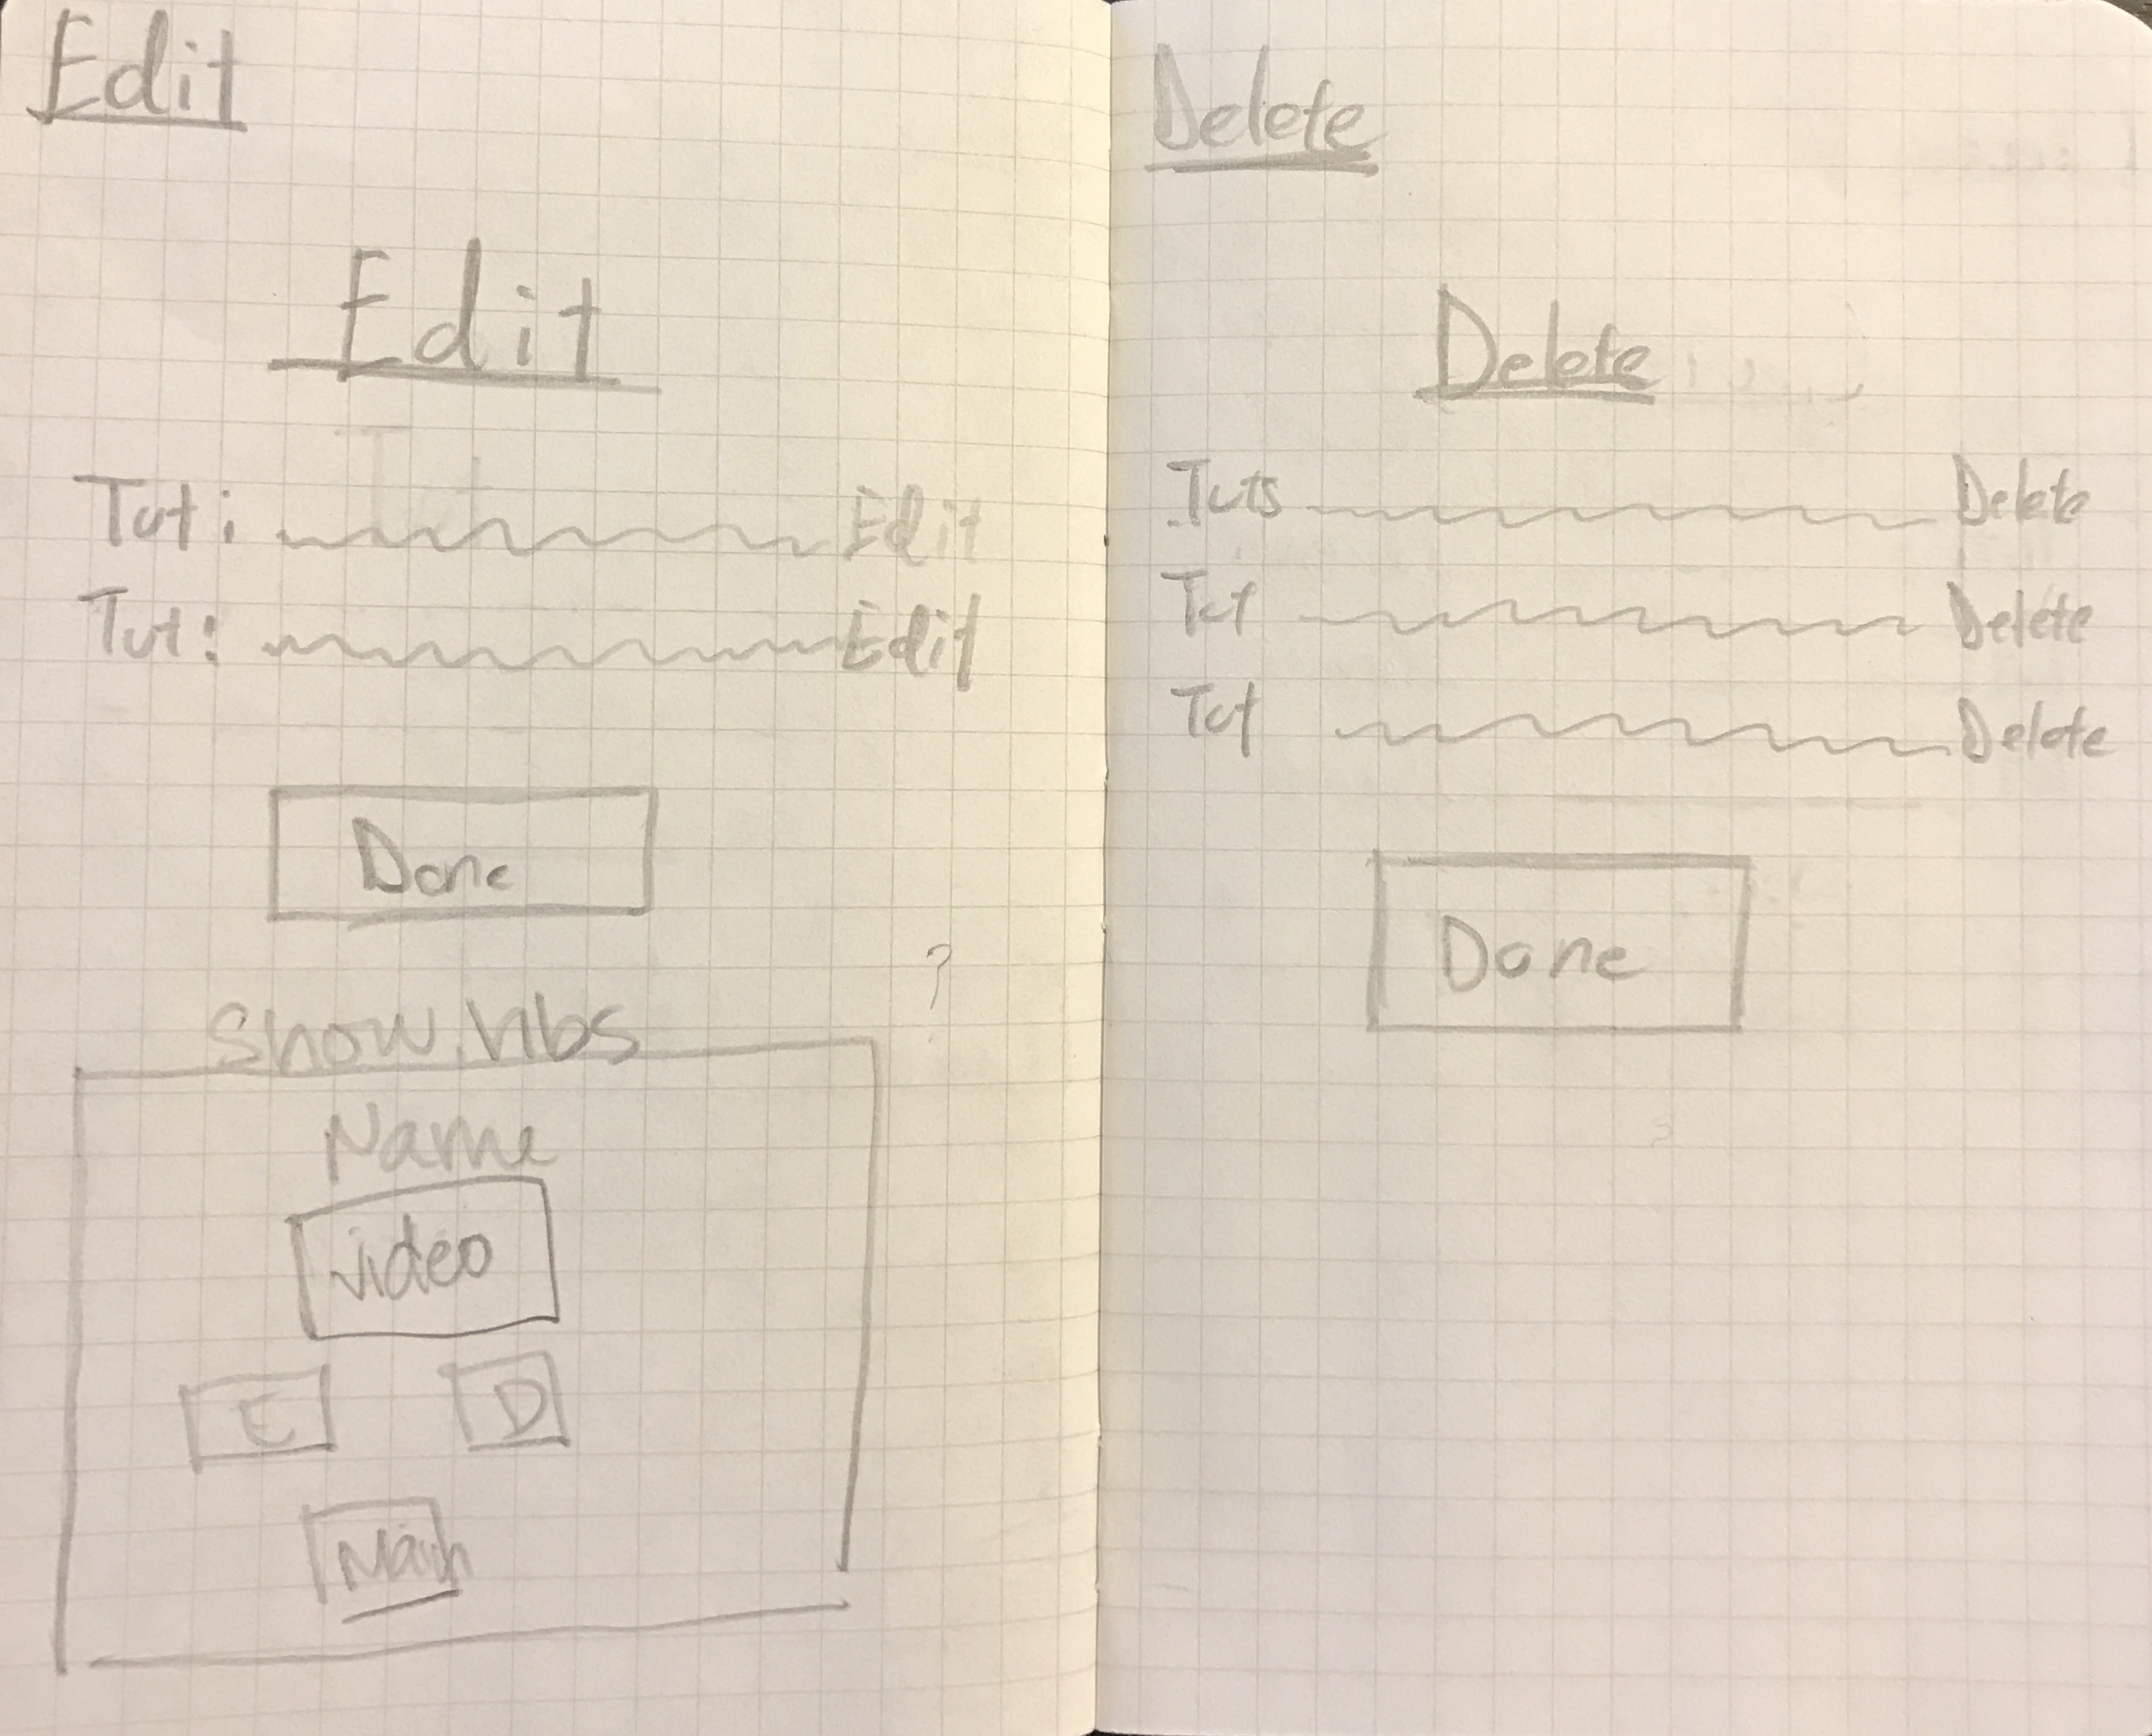 Edit
Edit
Tut: Edit
Tut: Edit
Done
?
Show.hbs
Name
video
E D
Main
Delete
Delete
Tuts Delete
Tut Delete
Tut Delete
Done